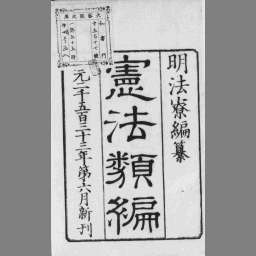 明法寮編纂
憲法類編
元二千五百三十三年第六月新刊